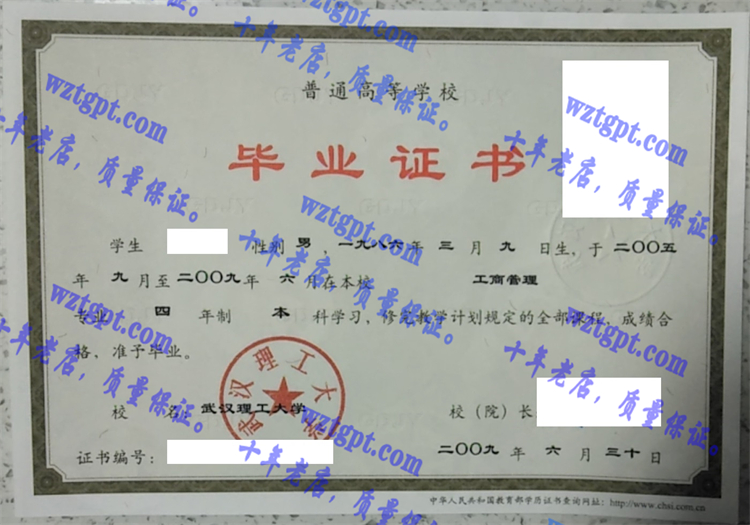 普通高等学校
毕业证书
学生 性别 男 ，一九八六年 三 月 九 日生，于 二〇〇五
年 九 月至 二〇〇九 年 六 月在本校 工商管理
专业 四 年制 本 科学习，修完教学计划规定的全部课程，成绩合
格，准予毕业。
武汉理工大学
校 名：武汉理工大学 校（院）长：
证书编号： 二〇〇九 年 六 月 三十 日
中华人民共和国教育部学历证书查询网址：http://www.chsi.com.cn
wztgpt.com
十年老店，质量保证。
wztgpt.com
十年老店，质量保证。
wztgpt.com
十年老店，质量保证。
wztgpt.com
十年老店，质量保证。
wztgpt.com
十年老店，质量保证。
wztgpt.com
十年老店，质量保证。
wztgpt.com
十年老店，质量保证。
wztgpt.com
十年老店，质量保证。